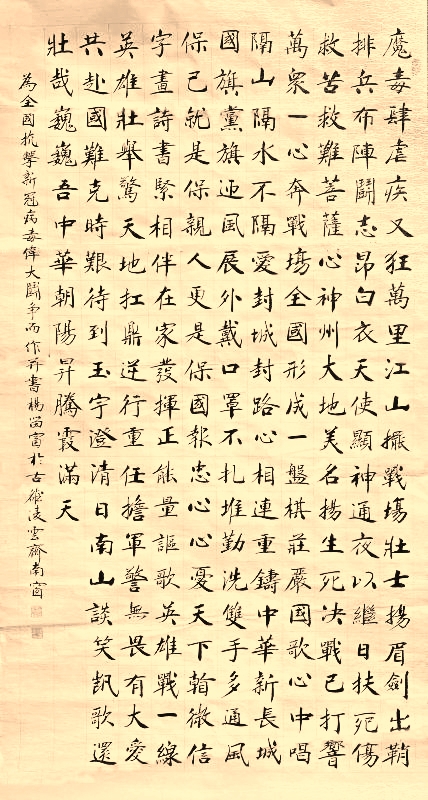 魔毒肆虐疾又狂萬里江山擺戰場壯士揚眉劍出鞘
排兵布陣鬭志昂白衣天使顯神通夜以繼日扶死傷
救苦救難菩薩心神州大地美名揚生死決戰已打響
萬衆一心奔戰場全國形成一盤棋莊嚴國歌心中唱
隔山隔水不隔愛封城封路心相連重鑄中華新長城
國旗黨旗迎風展外戴口罩不扎堆勤洗雙手多通風
保己就是保親人更是保國報忠心心憂天下翰微信
字畫詩書緊相伴在家發揮正能量謳歌英雄戰一線
英雄壯舉驚天地扛鼎逆行重任擔軍警無畏有大愛
共赴國難克時艱待到玉宇澄清日南山談笑凱歌還
壯哉巍巍吾中華朝陽昇騰霞滿天
為全國抗擊新冠病毒偉大鬭争而作并書楊富於古陵雲齋南窗